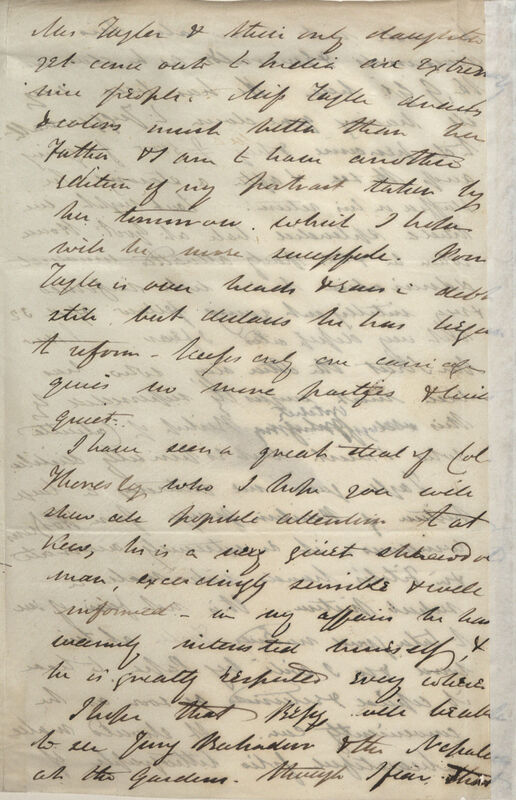 Mrs Taylor & their only daughter
yet come out to India are extrem
nice people. Miss Taylor draws
& colors much better than her
Father & I am to have another
edition of my portrait taken by
her tomorrow. which I hope
will be more successful. Poor
Taylor is over heads & ears in debt
still but declares he has begun
to reform - keeps only one carriage
gives no more parties & lives
quiet.
I have seen a great deal of Col
Thoresby who I hope you will
shew all possible attention to at
Kew, he is a very quiet shrewd
man, exceedingly sensible & well
informed - in my affairs he has
warmly interested himself, &
he is greatly respected every where
I hope that Bessy will be able
to see Jung Bahadur & the Nepale
at the Gardens. though I fear that